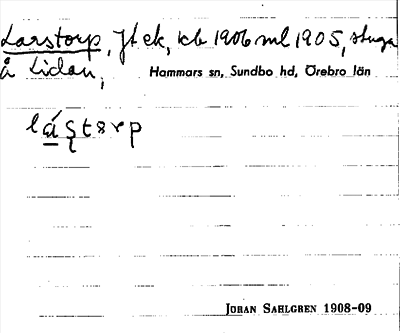 Larstorp, Jt ek, kb 1906 ml 1905, stuga
å Lidan,
Hammars sn, Sundbo hd, Örebro län
JOHAN SAHLGREN 1908-09